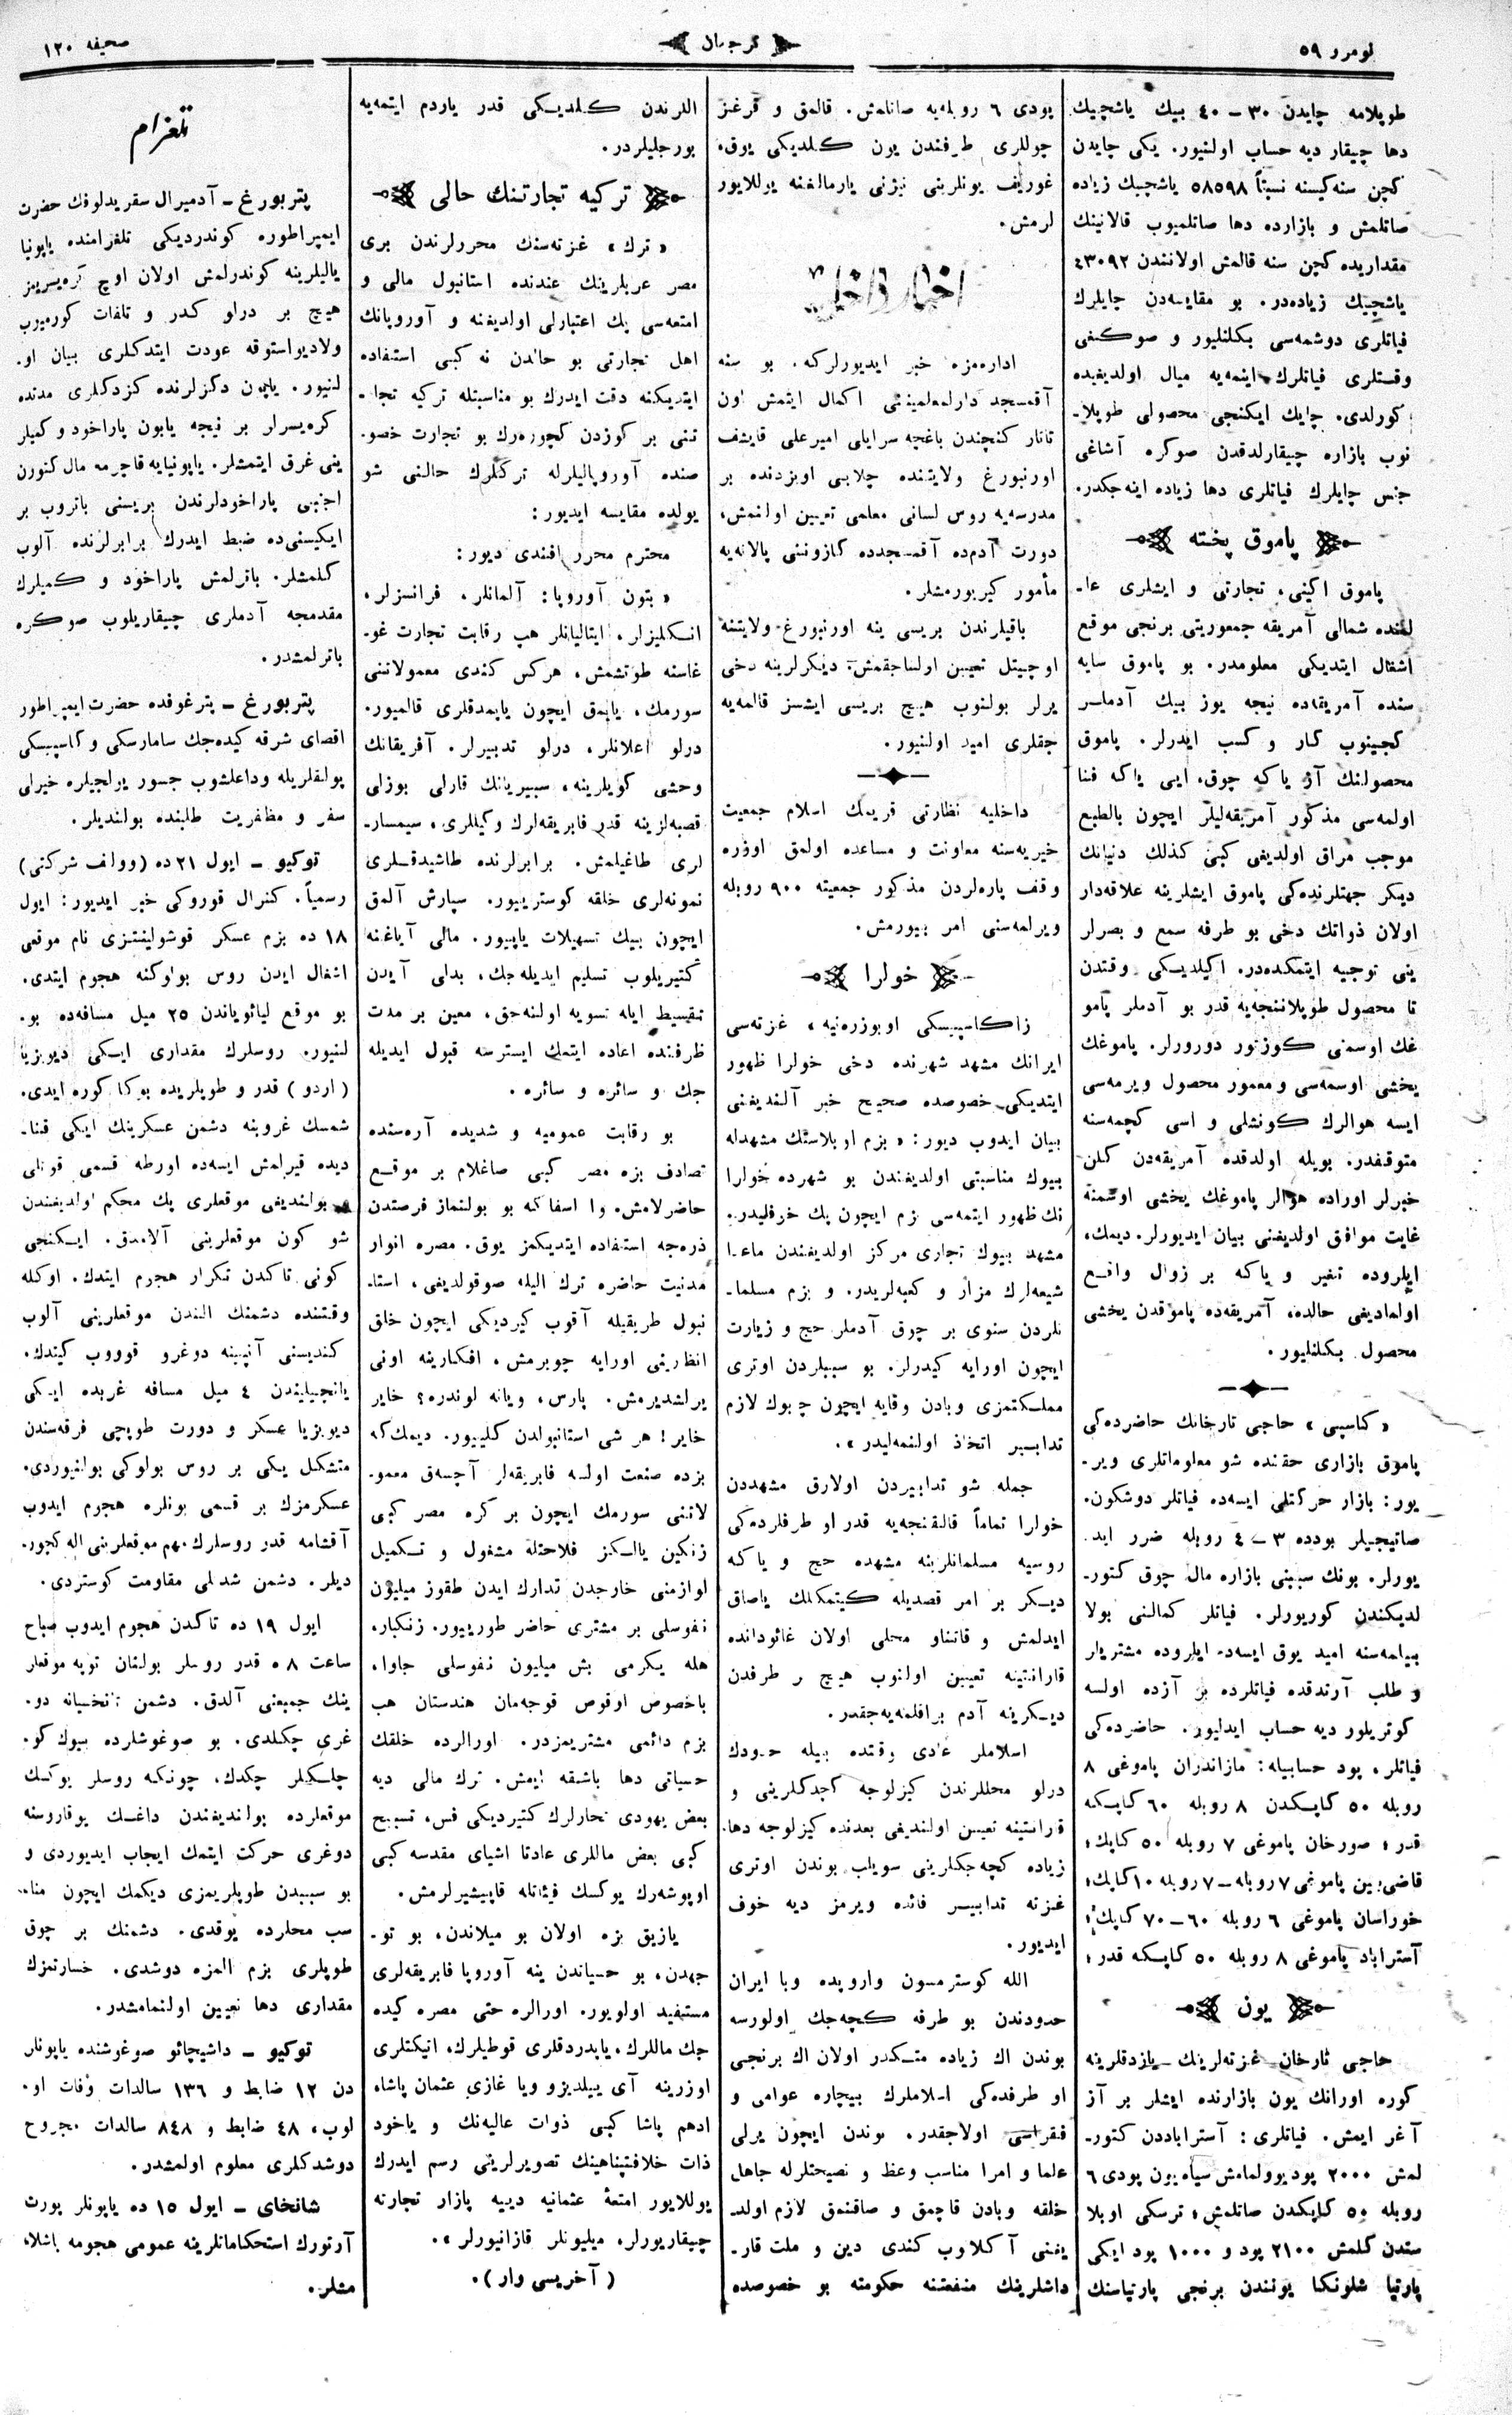 نومرو ٥٩
ترجمان
صحيفه ١٢٠
طوپلامه چايدن ٣٠ – ٤٠ بيك ياشچيك
دها چيقار ديه حساب اولنيور. يكى چايدن
كچن سنه‌كيسنه نسبتاً ٥٨٥٩٨ ياشچيك زياده
صاتلمش و بازارده دها صاتلميوب قالانينك
مقداريده كچن سنه قالمش اولانندن ٤٣٠٩٢
ياشچيك زياده‌در. بو مقايسه‌دن چايلرك
فياتلرى دوشمه‌سى بكلنليور و صوكنغى
وقتلرى فياتلرك اينمه‌يه ميال اولديغيده
كورلدى. چايك ايكنجى محصولى طوپلا-
نوب بازاره چيقارلدقدن صوكره آشاغى
جنس چايلرك فياتلرى دها زياده اينه‌جكدر.
پاموق پخته
پاموق اكينى، تجارتى و ايشلرى عا-
لمنده شمالى آمريقه جمعوريتى برنجى موقع
اشغال ايتديكى معلومدر. بو پاموق سايه
سنده آمريقاده نيجه يوز بيك آدملر
كچينوب كار و كسب ايدرلر. پاموق
محصولنك آز ياكه چوق، ايى ياكه فنا
اولمه‌سى مذكور آمريقه‌ليلر ايچون بالطبع
موجب مراق اولديغى كبى كذلك دنيانك
ديكر جهتلرنده‌كى پاموق ايشلرينه علاقه‌دار
اولان ذواتك دخى بو طرفه سمع و بصرلر
ينى توجيه ايتمكده‌در. اكيلديكى وقتدن
تا محصول طوپلاننجه‌يه قدر بو آدملر پامو
غك اوسمنى كوزتور دورورلر. پاموغك
يخشى اوسمه‌سى و معمور محصول ويرمه‌سى
ايسه هوالرك كونشلى و اسى كچمه‌سنه
متوقفدر. بويله اولدقده آمريقه‌دن كلن
خبرلر اوراده هوالر پاموغك يخشى اوسمنه
غايت موافق اولديغنى بيان ايديورلر. ديمك،
ايلروده تغير و ياكه بر زوال واقع
اولماديغى حالده، آمريقه‌ده پاموقدن يخشى
محصول بكلنليور.
« كاسپى » حاجى تارخانك حاضرده‌كى
پاموق بازارى حقنده شو معلوماتلرى وير-
يور: بازار حركتلى ايسه‌ده فياتلر دوشكون.
صاتيجيلر بودده ٣ – ٤ روبله ضرر ايد.
يورلر. بونك سببنى بازاره مال چوق كتور-
لديكندن كوريورلر. فياتلر كمالنى بولا
بيلمه‌سنه اميد يوق ايسه‌ده ايلروده مشتريلر
و طلب آرتدقده فياتلرده بر آزده اولسه
كوتريلور ديه حساب ايدليور. حاضرده‌كى
فياتلر، پود حسابيله: مازاندران پاموغى ٨
روبله ٥٠ كاپكدن ٨ روبله ٦٠ كاپكه
قدر؛ صورخان پاموغى ٧ روبله ٥٠ كاپك؛
قاضى‌بين پاموغى ٧ روبله – ٧ روبله ١٠ كاپك؛
خوراسان پاموغى ٦ روبله ٦٠ – ٧٠ كاپك؛
آستراباد پاموغى ٨ روبله ٥٠ كاپكه قدر؛
يون
حاجى تارخان غزته‌لرينك يازدقلرينه
كوره اورانك يون بازارنده ايشلر بر آز
آغر ايمش. فياتلرى: آستراباددن كتور-
لمش ٢٠٠٠ پود يوولمامش سياه يون پودى ٦
روبله ٥٠ كاپكدن صاتلمش؛ ترسكى اوبلا
ستدن كلمش ٢١٠٠ پود و ١٠٠٠ پود ايكى
پارتيا شلونكا يونندن برنجى پارتياسنك
پودى ٦ روبله‌يه صاتلمش. قالمق و قرغز
چوللرى طرفندن يون كلديكى يوق.
غوريف يونلرينى نيژنى يارمالغنه يوللايور
لرمش.
اخبار داخليه
اداره‌مزه خبر ايديورلركه، بو سنه
آقمسجد دارلمعلميننى اكمال ايتمش اون
تاتار كنچندن باغچه سرايلى اميرعلى قايشف
اورنبورغ ولايتنده چلابى اويزدنده بر
مدرسه‌يه روس لسانى معلمى تعيين اولنمش،
دورت آدمده آقمسجدده كازوننى پالاته‌يه
مأمور كيريورمشلر.
باقيلرندن بريسى ينه اورنبورغ ولايتنه
اوچيتل تعيين اولناجقمش. ديكرلرينه دخى
يرلر بولنوب هيچ بريسى ايشسز قالمه‌يه
جقلرى اميد اولنيور.
داخليه نظارتى قريمك اسلام جمعيت
خيريه‌سنه معاونت و مساعده اولمق اوزره
وقف پاره‌لردن مذكور جمعيته ٩٠٠ روبله
ويرلمه‌سنى امر بيورمش.
خولرا
زاكاسپيسكى اوبوزره‌نيه » غزته‌سى
ايرانك مشهد شهرنده دخى خولرا ظهور
ايتديكى خصوصده صحيح خبر آلنديغنى
بيان ايدوب ديور: « بزم اوبلاستك مشهدله
بيوك مناسبتى اولديغندن بو شهرده خولرا
نك ظهور ايتمه‌سى بزم ايچون پك خوفليدر.
مشهد بيوك تجارى مركز اولديغندن ماعدا
شيعه‌لرك مزار و كعبه‌لريدر. و بزم مسلما-
نلردن سنوى بر چوق آدملر حج و زيارت
ايچون اورايه كيدرلر. بو سببلردن اوترى
مملكتمزى وبادن وقايه ايچون چبوك لازم
تدابير اتخاذ اولنمه‌ليدر ».
جمله شو تدابيردن اولارق مشهددن
خولرا تماماً قالقنجه‌يه قدر او طرفلرده‌كى
روسيه مسلمانلرينه مشهده حج و ياكه
ديكر بر امر قصديله كيتمكلك ياصاق
ايدلمش و قاتناو محلى اولان غائودانده
قارانتينه تعيين اولنوب هيچ بر طرفدن
ديكرينه آدم براقلمه‌يه‌جقدر.
اسلاملر عادى وقتده بيله حدودك
درلو محللرندن كيزلوجه كچدكلرينى و
قرانتينه تعيين اولنديغى بعدنده كيزلوجه دها
زياده كچه‌جكلرينى سويلب بوندن اوترى
غزته تدابير فائده ويرمز ديه خوف
ايديور.
الله كوسترمسون واروپده وبا ايران
حدودندن بو طرفه كچه‌جك اولورسه
بوندن اك زياده متكدر اولان اك برنجى
او طرفده‌كى اسلاملرك بيچاره عوامى و
فقراسى اولاجقدر. بوندن ايچون يرلى
علما و امرا مناسب وعظ و نصيحتلرله جاهل
خلقه وبادن قاچمق و صاقنمق لازم اولد-
يغنى آكلاوب كندى دين و ملت قار-
داشلرينك منفعتنه حكومته بو خصوصده
اللرندن كلديكى قدر ياردم ايتمه‌يه
بورجليلردر.
تركيه تجارتنك حالى
« ترك » غزته‌سنك محررلرندن برى
مصر عربلرينك عندنده استانبول مالى و
امتعه‌سى پك اعتبارلى اولديغنه و آوروپانك
اهل تجارتى بو حالدن نه كبى استفاده
ايتديكنه دقت ايدرك بو مناسبتله تركيه تجا-
تنى بر كوزدن كچوره‌رك بو تجارت خصو-
صنده آوروپاليلرله تركلرك حالنى شو
يولده مقايسه ايديور:
محترم محرر افندى ديور:
« بتون آوروپا: آلمانلر، فرانسزلر،
انكليزلر، ايتاليانلر هپ رقابت تجارت غو-
غاسنه طوتشمش، هركس كندى معمولاتنى
سورمك، يايمق ايچون يابمدقلرى قالميور.
درلو اعلانلر، درلو تدبيرلر. آفريقانك
وحشى كويلرينه، سيبيريانك قارلى بوزلى
قصبه‌لرينه قدر فابريقه‌لرك وكيللرى، سيمسار-
لرى طاغيلمش. برابرلرنده طاشيدقلرى
نمونه‌لرى خلقه كوستريور. سپارش آلمق
ايچون بيك تسهيلات ياپيور. مالى آياغنه
كتيريلوب تسليم ايديله‌جك، بدلى آيدن
تقسيط ايله تسويه اولنه‌جق، معين بر مدت
ظرفنده اعاده ايتمك ايسترسه قبول ايديله
جك و سائره و سائره.
بو رقابت عموميه و شديده آره‌سنده
تصادف بزه مصر كبى صاغلام بر موقع
حاضرلامش. وا اسفاكه بو بولنماز فرصتدن
ذره‌جه استفاده ايتديكمز يوق. مصره انوار
مدنيت حاضره ترك اليله صوقولديغى، استا-
نبول طريقيله آقوب كيرديكى ايچون خلق
انظارينى اورايه چويرمش، افكارينه اونى
يرلشديرمش. پارس، ويانه لوندره؟ خاير
خاير! هر شى استانبولدن كلييور. ديمك‌كه
بزده صنعت اولسه فابريقه‌لر آچسه‌ق معمو-
لاتنى سورمك ايچون بر كره مصر كبى
زنكين يالكز فلاحتله مشغول و تكميل
لوازمنى خارجدن تدارك ايدن طقوز ميليون
نفوسلى بر مشترى حاضر طورييور. زنكبار،
هله يكرمى بش ميليون نفوسلى جاوا،
باخصوص اوقوص قوجه‌مان هندستان هپ
بزم دائمى مشتريمزدر. اورالرده خلقك
حسياتى دها باشقه ايمش. ترك مالى ديه
بعض يهودى تجارلرك كتيرديكى فس، تسبيح
كبى بعض ماللرى عادتا اشياى مقدسه كبى
اوپوشه‌رك يوكسك فيئاتله قاپيشيرلرمش.
يازيق بزه اولان بو ميلاندن، بو تو-
جهدن، بو حسياندن ينه آوروپا فابريقه‌لرى
مستفيد اولويور. اورالره حتى مصره كيده
جك ماللرك، ياپدردقلرى قوطيلرك، اتيكتلرى
اوزرينه آى ييلديزو ويا غازى عثمان پاشاه
ادهم پاشا كبى ذوات عاليه‌نك و ياخود
ذات خلافتپناهينك تصويرلرينى رسم ايدرك
يوللايور امتعهٔ عثمانيه دييه پازار تجارته
چيقاريورلر، ميليونلر قازانيورلر ».
( آخريسى وار ).
تلغرام
پتربورغ – آدميرال سقريدلوفك حضرت
ايمپراطوره كوندرديكى تلغرامنده ياپونيا
ياليلرينه كوندرلمش اولان اوچ كره‌يسريمز
هيچ بر درلو كدر و تلفات كورميوب
ولاديواستوقه عودت ايتدكلرى بيان او-
لنيور. ياپون دكزلرنده كزدكلرى مدتده
كره‌يسرلر بر نيجه ياپون پاراخود و كميلر
ينى غرق ايتمشلر. ياپونيايه قاچرمه مال كتورن
اجنبى پاراخودلرندن بريسنى باتروب بر
ايكيسنى‌ده ضبط ايدرك برابرلرنده آلوب
كلمشلر. باترلمش پاراخود و كميلرك
مقدمجه آدملرى چيقاريلوب صوكره
باترلمشدر.
پتربورغ – پترغوفده حضرت ايمپراطور
اقصاى شرقه كيده‌جك سامارسكى و كاسپيسكى
پولقلريله وداعلشوب جسور يرلجيلره خيرلى
سفر و مظفريت طلبنده بولنديلر.
توكيو – ايول ٢١ ده (وولف شركتى)
رسمياً. كنرال قوروكى خبر ايديور: ايول
١٨ ده بزم عسكر قوشولينتزى نام موقعى
اشغال ايدن روس بولوكنه هجوم ايتدى.
بو موقع لياؤياندن ٢٥ ميل مسافه‌ده بو.
لنيور. روسلرك مقدارى ايكى ديويزيا
( اردو ) قدر و طوپلريده بوكا كوره ايدى.
شمسك غروبنه دشمن عسكرينك ايكى قنا-
ديده قيرلمش ايسه‌ده اورطه قسمى قوتلى
بولنديغى موقعلرى پك محكم اولديغندن
شو كون موقعلرينى آلامدق. ايكنجى
كونى تاكدن تكرار هجوم ايتدك. اوكله
وقتنده دشمنك الندن موقعلرينى آلوب
كنديسنى آنپينه دوغرو قوووب كيتدك.
يانچيليندن ٤ ميل مسافه غربده ايكى
ديويزيا عسكر و دورت طوپچى فرقه‌سندن
متشكل يكى بر روس بولوكى بولنيوردى.
عسكرمزك بر قسمى بونلره هجوم ايدوب
آقشامه قدر روسلرك مهم موقعلرينى اله كچور.
ديلر. دشمن شدتلى مقاومت كوستردى.
ايول ١٩ ده تاكدن هجوم ايدوب صباح
ساعت ٨ ه قدر روسلر بولنان توپه موقعلر
ينك جميعنى آلدق. دشمن آنخيانه دو-
غرى چكلدى. بو صوغوشلرده بيوك كو-
چلكلر چكدك، چونكه روسلر يوكسك
موقعلرده بولنديغندن داغك يوقاروسنه
دوغرى حركت ايتمك ايجاب ايديوردى و
بو سببدن طوپلريمزى ديكمك ايچون منا-
سب محلرده يوقدى. دشمنك بر چوق
طوپلرى بزم المزه دوشدى. خسارتمزك
مقدارى دها تعيين اولنمامشدر.
توكيو – داشيچائو صوغوشنده ياپونلر
دن ١٢ ضابط و ١٣٦ سالدات وفات او.
لوب، ٤٨ ضابط و ٨٤٨ سالدات مجروح
دوشدكلرى معلوم اولمشدر.
شانخاى – ايول ١٥ ده ياپونلر پورت
آرتورك استحكاماتلرينه عمومى هجومه باشلا-
مشلر.